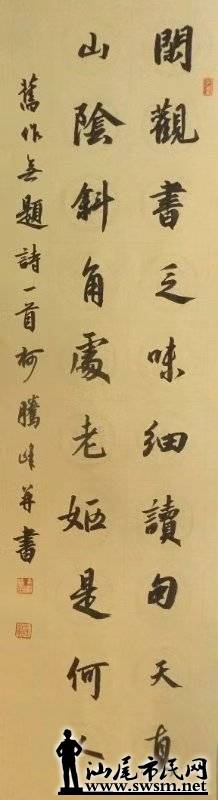 閑觀書乏味細讀句天真
山陰斜角處老姬是何人
舊作无題詩一首柯騰峰并書
汕尾市民网
www.swsm.net